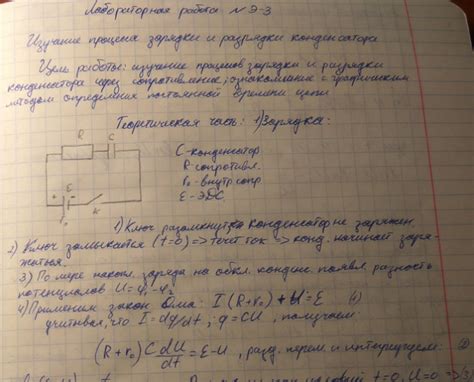 Лабораторная работа № Э-3
Изучение процесса зарядки и разрядки конденсатора
Цель работы: изучение процессов зарядки и разрядки
конденсатора через сопротивление; ознакомление с графическим
методом определения постоянной времени цепи
Теоретическая часть: 1) Зарядка:
R C
C-конденсатор
R-сопротивл.
r₀-внутр сопр.
Ɛ-ЭДС
+ Ɛ -
r₀ K
1) Ключ разомкнут => конденсатор не заряжен
2) Ключ замыкается (t=0) => течет ток => конд. начинает заря-
жаться
3) По мере накопл. заряда на обкл. конденс. появл. разность
потенциалов U = φ₁-φ₂
4) Применим закон Ома: I(R+r₀)+U=Ɛ (1)
учитывая, что I=dq/dt; q=CU, получаем:
(R+r₀) C dU/dt = Ɛ-U, разд. перем и интегрируем: (2)
t=0, U=0 =>